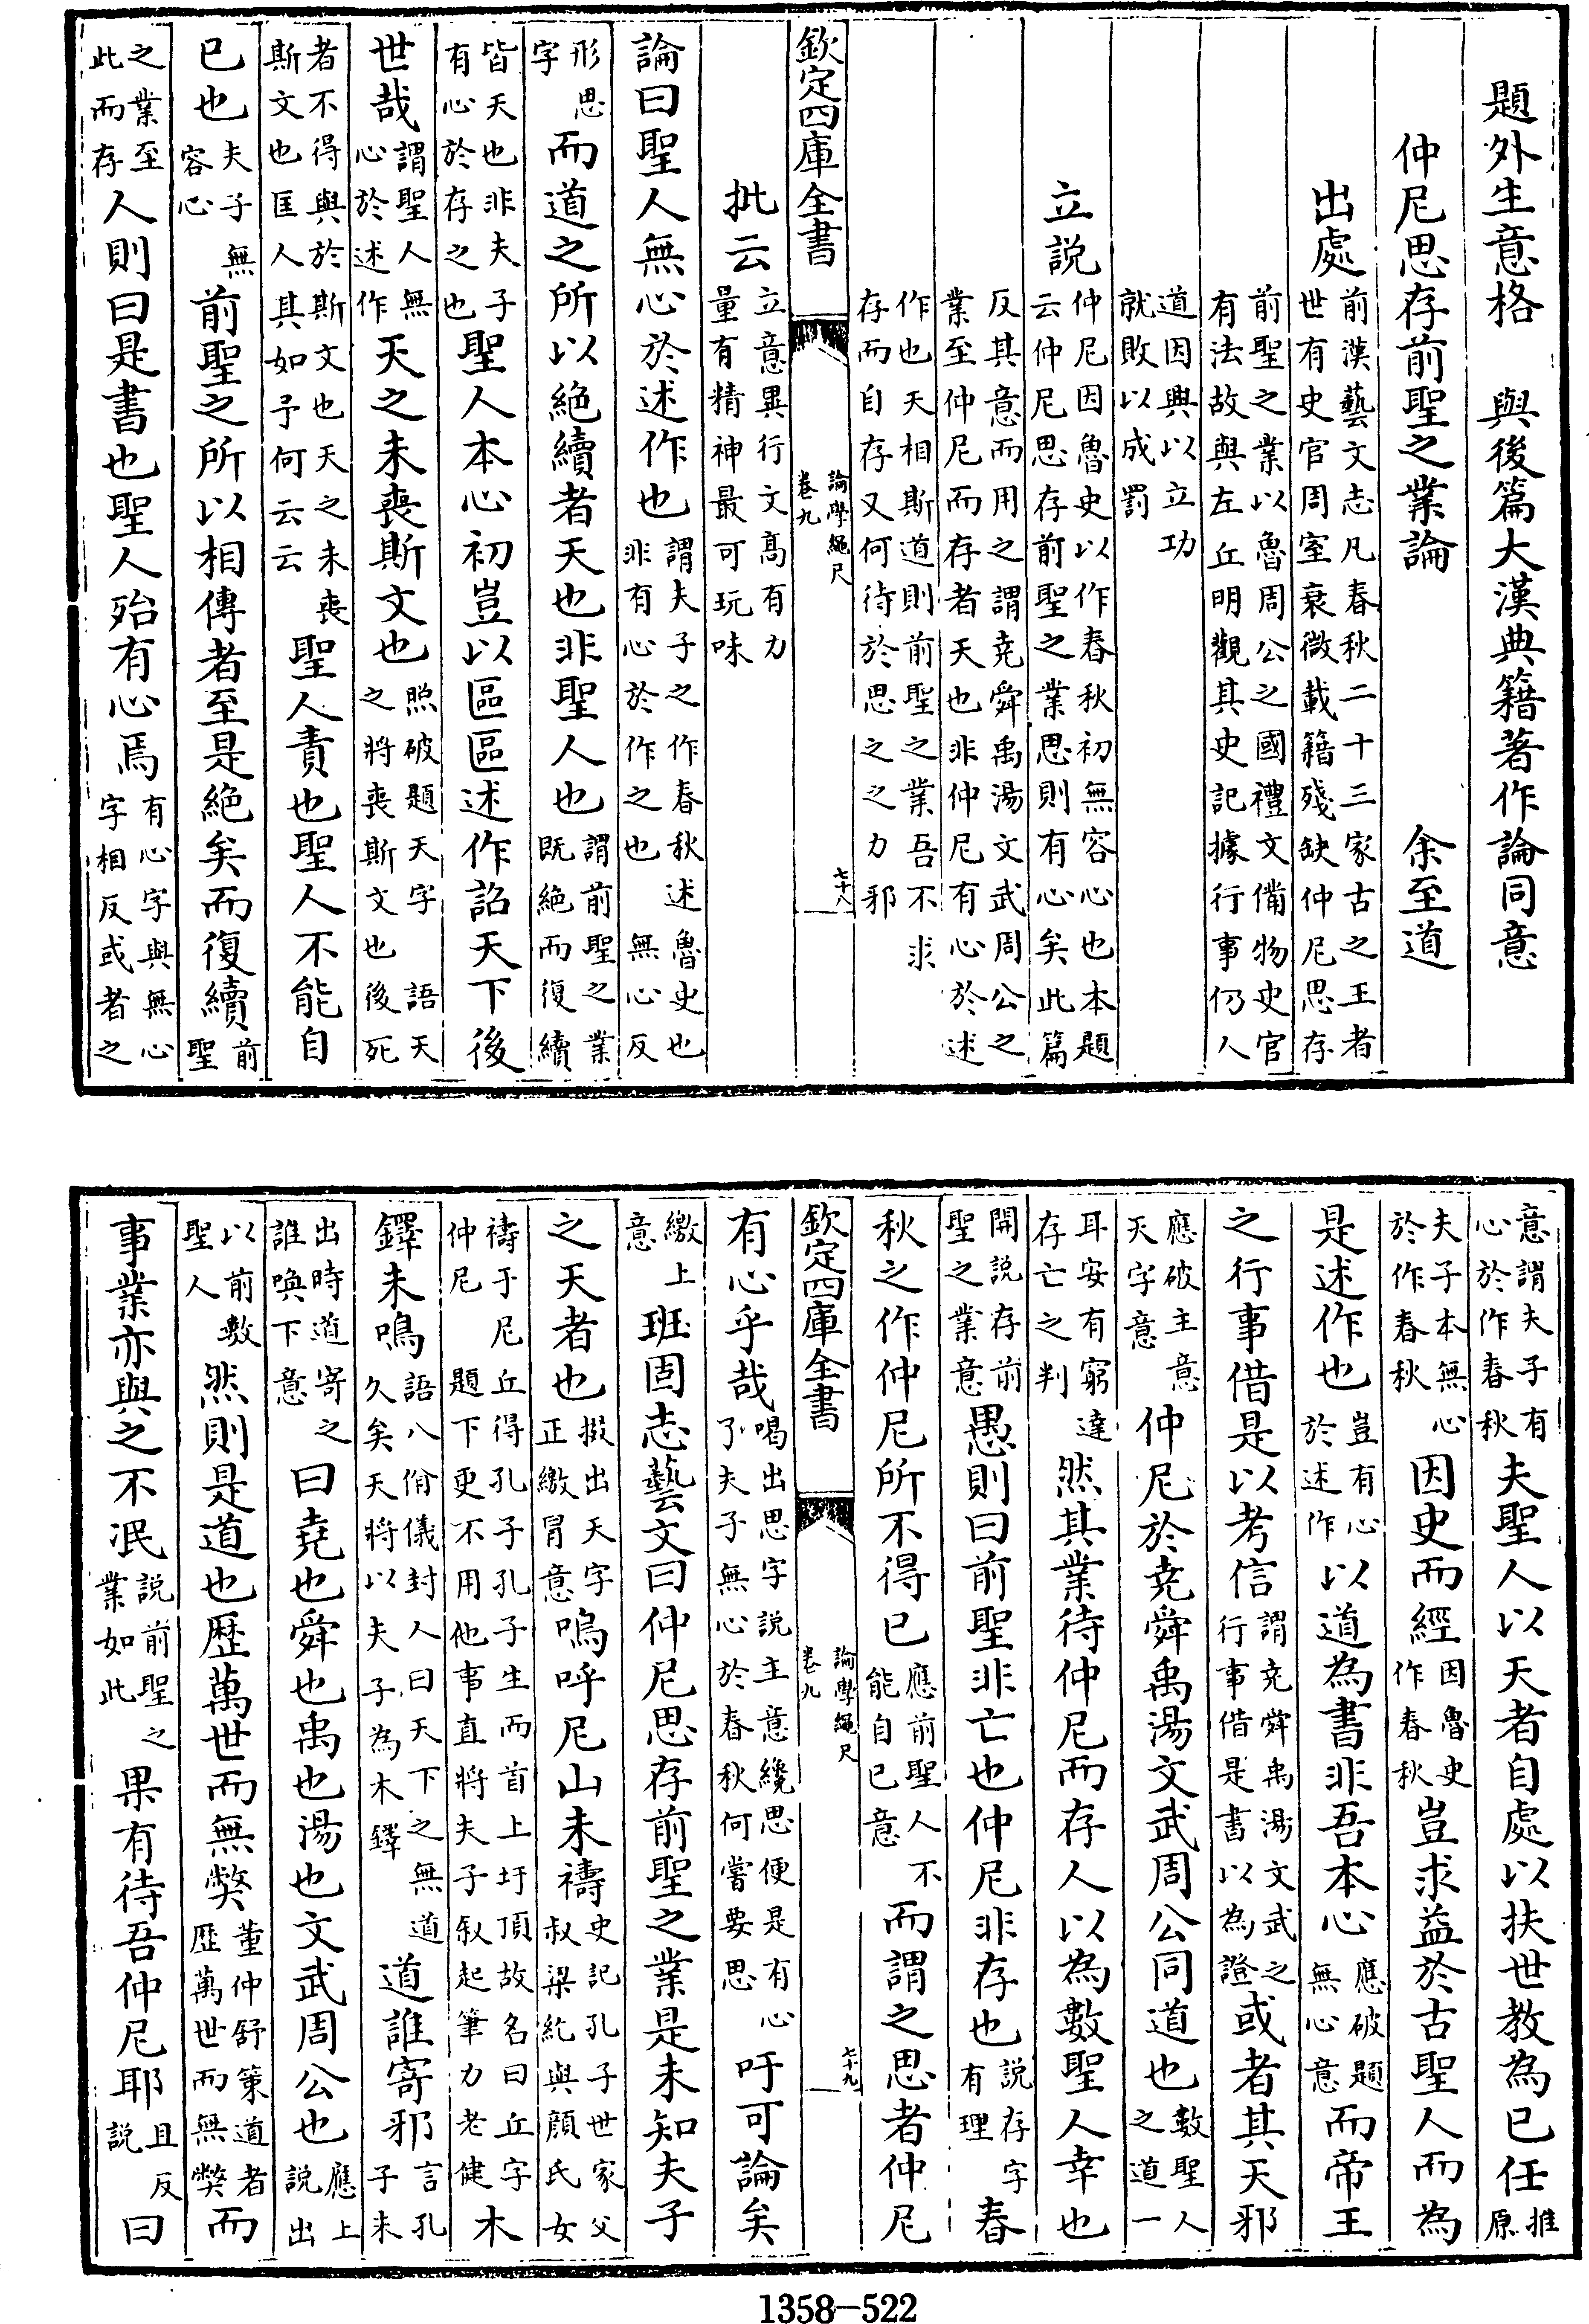 題外生意格　與後篇大漢典籍著作論同意
仲尼思存前聖之業論　余至道
出處前漢藝文志凡春秋二十三家古之王者世有史官周室衰微載籍殘缺仲尼思存
前聖之業以魯周公之國禮文備物史官有法故與左丘明觀其史記據行事仍人
道因興以立功就敗以成罰
立説仲尼因魯史以作春秋初無容心也本題云仲尼思存前聖之業思則有心矣此篇
反其意而用之謂堯舜禹湯文武周公之業至仲尼而存者天也非仲尼有心於述
作也天相斯道則前聖之業吾不求存而自存又何待於思之之力邪
欽定四庫全書　論學繩尺卷九　七十八
批云立意異行文高有力量有精神最可玩味
論曰聖人無心於述作也謂夫子之作春秋述魯史也非有心於作之也無心反
形思字而道之所以絶續者天也非聖人也謂前聖之業既絶而復續
皆天也非夫子有心於存之也聖人本心初豈以區區述作詔天下後
世哉謂聖人無心於述作天之未喪斯文也照破題天字語天之將喪斯文也後死
者不得與於斯文也天之未喪斯文也匡人其如予何云云聖人責也聖人不能自
已也夫子無容心前聖之所以相傳者至是絶矣而復續前聖
之業至此而存人則曰是書也聖人殆有心焉有心字與無心字相反或者之
意謂夫子有心於作春秋夫聖人以天者自處以扶世教為已任推原
夫子本無心於作春秋因史而經因魯史作春秋豈求益於古聖人而為
是述作也豈有心於述作以道為書非吾本心應破題無心意而帝王
之行事借是以考信謂堯舜禹湯文武之行事借是書以為證或者其天邪
應破主意天字意仲尼於堯舜禹湯文武周公同道也數聖人之道一
耳安有窮達存亡之判然其業待仲尼而存人以為數聖人幸也
開説存前聖之業意愚則曰前聖非亡也仲尼非存也説存字有理春
秋之作仲尼所不得已應前聖人不能自已意而謂之思者仲尼
欽定四庫全書　論學繩尺卷九　七十九
有心乎哉喝出思字説主意纔思便是有心了夫子無心於春秋何嘗要思吁可論矣
繳上意班固志藝文曰仲尼思存前聖之業是未知夫子
之天者也掇出天字正繳冒意嗚呼尼山未禱史記孔子世家父叔梁紇與顔氏女
禱于尼丘得孔子孔子生而首上圩頂故名曰丘字仲尼題下更不用他事直將夫子叙起筆力老健木
鐸未鳴語八佾儀封人曰天下之無道久矣天將以夫子為木鐸道誰寄邪言孔子未
出時道寄之誰喚下意曰堯也舜也禹也湯也文武周公也應上説出
以前數聖人然則是道也歴萬世而無弊董仲舒策道者歴萬世而無弊而
事業亦與之不泯説前聖之業如此果有待吾仲尼耶且反説曰
1358—522